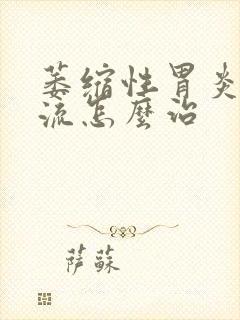 萎缩性胃炎
流怎麼治
萨蘇